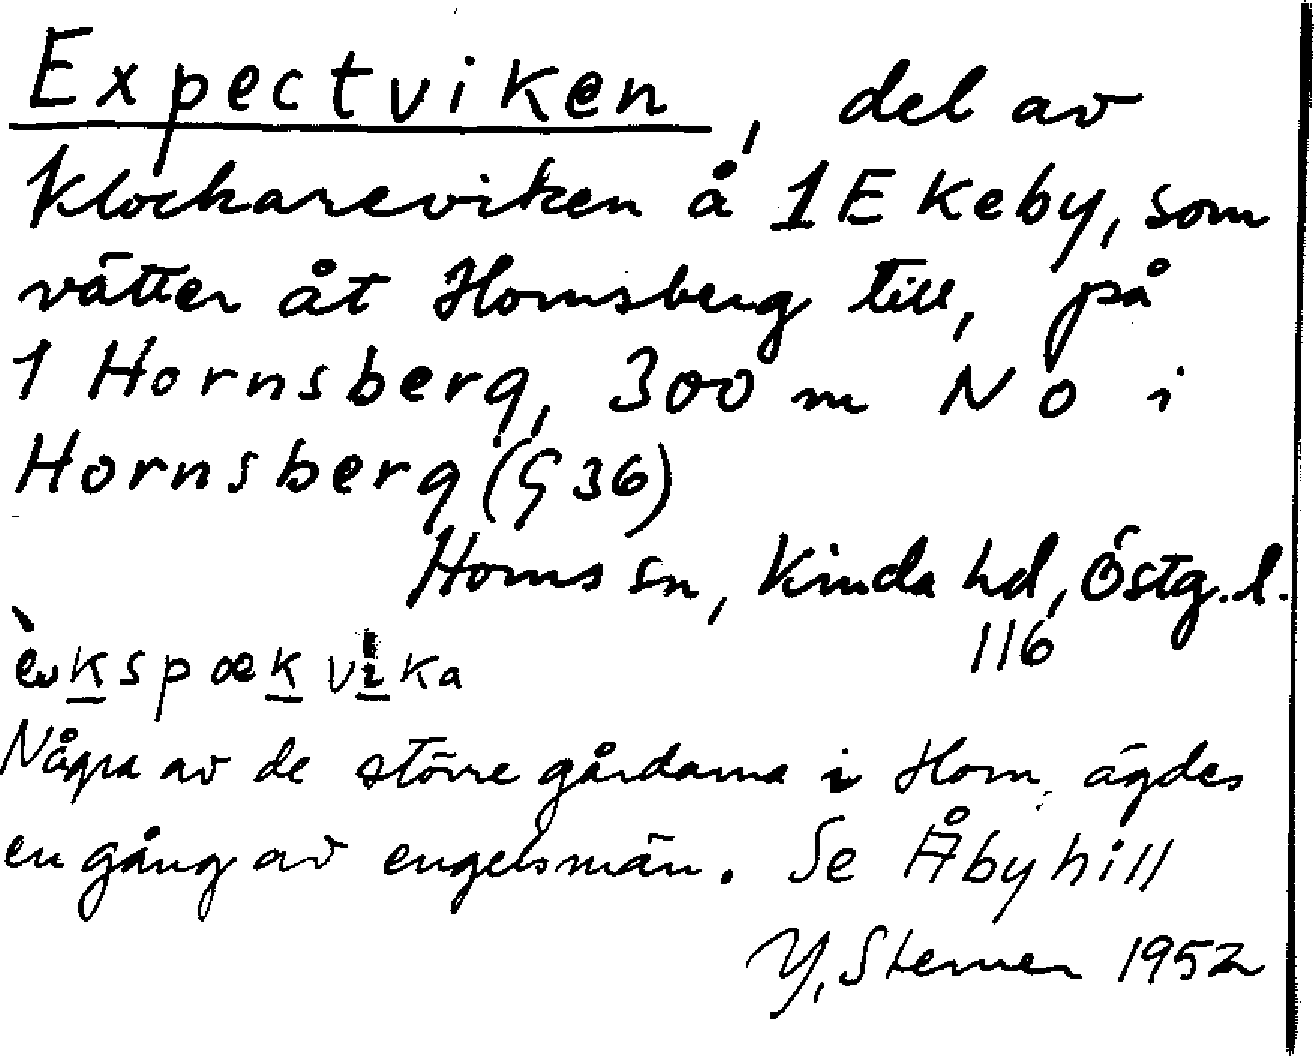 Expectviken, del av
Klockareviken å 1 Ekeby, som
vätter åt Hornsberg till, på
1 Hornsberg, 300 m NO i
Hornsberg (G 36)
Horns sn, Kinda hd, Östg. l.
116
Några av de större gårdarna i Horn, ägdes
en gång av engelsmän. Se Åbyhill
Y, Sterner 1952